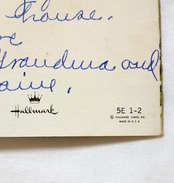 house.
Grandma and
Hallmark
5E 1-2
© HALLMARK CARDS, INC.
MADE IN U.S.A.